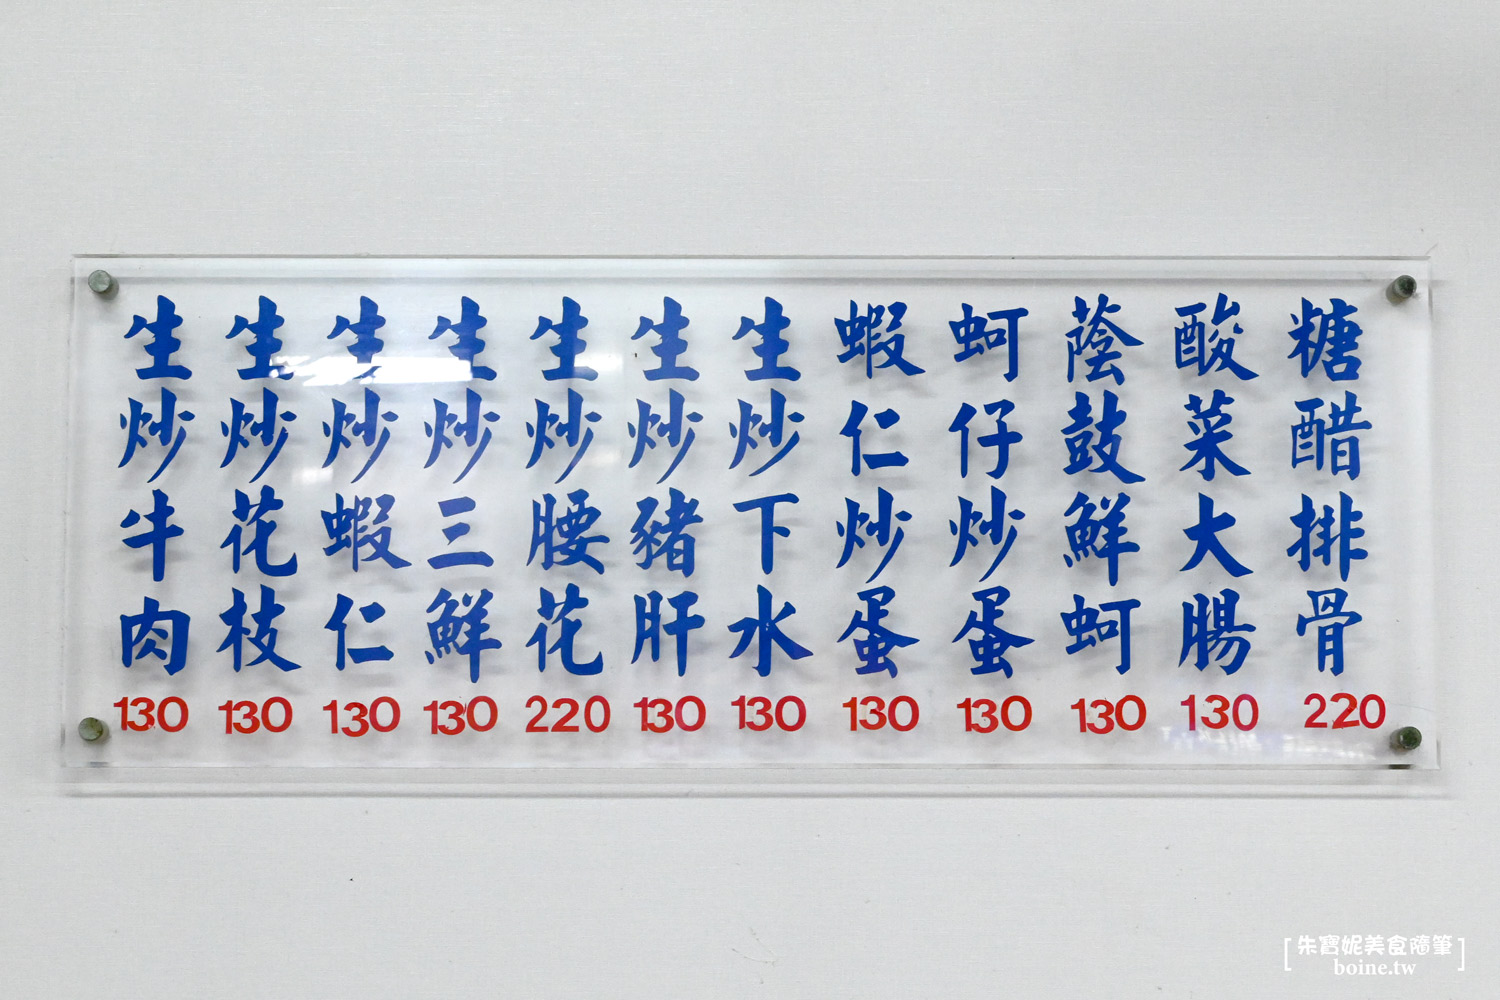 生炒牛肉 130
生炒花枝 130
生炒蝦仁 130
生炒三鮮 130
生炒腰花 220
生炒豬肝 130
生炒下水 130
蝦仁炒蛋 130
蚵仔炒蛋 130
蔭鼓鮮蚵 130
酸菜大腸 130
糖醋排骨 220
[朱寶妮美食隨筆]
boine.tw